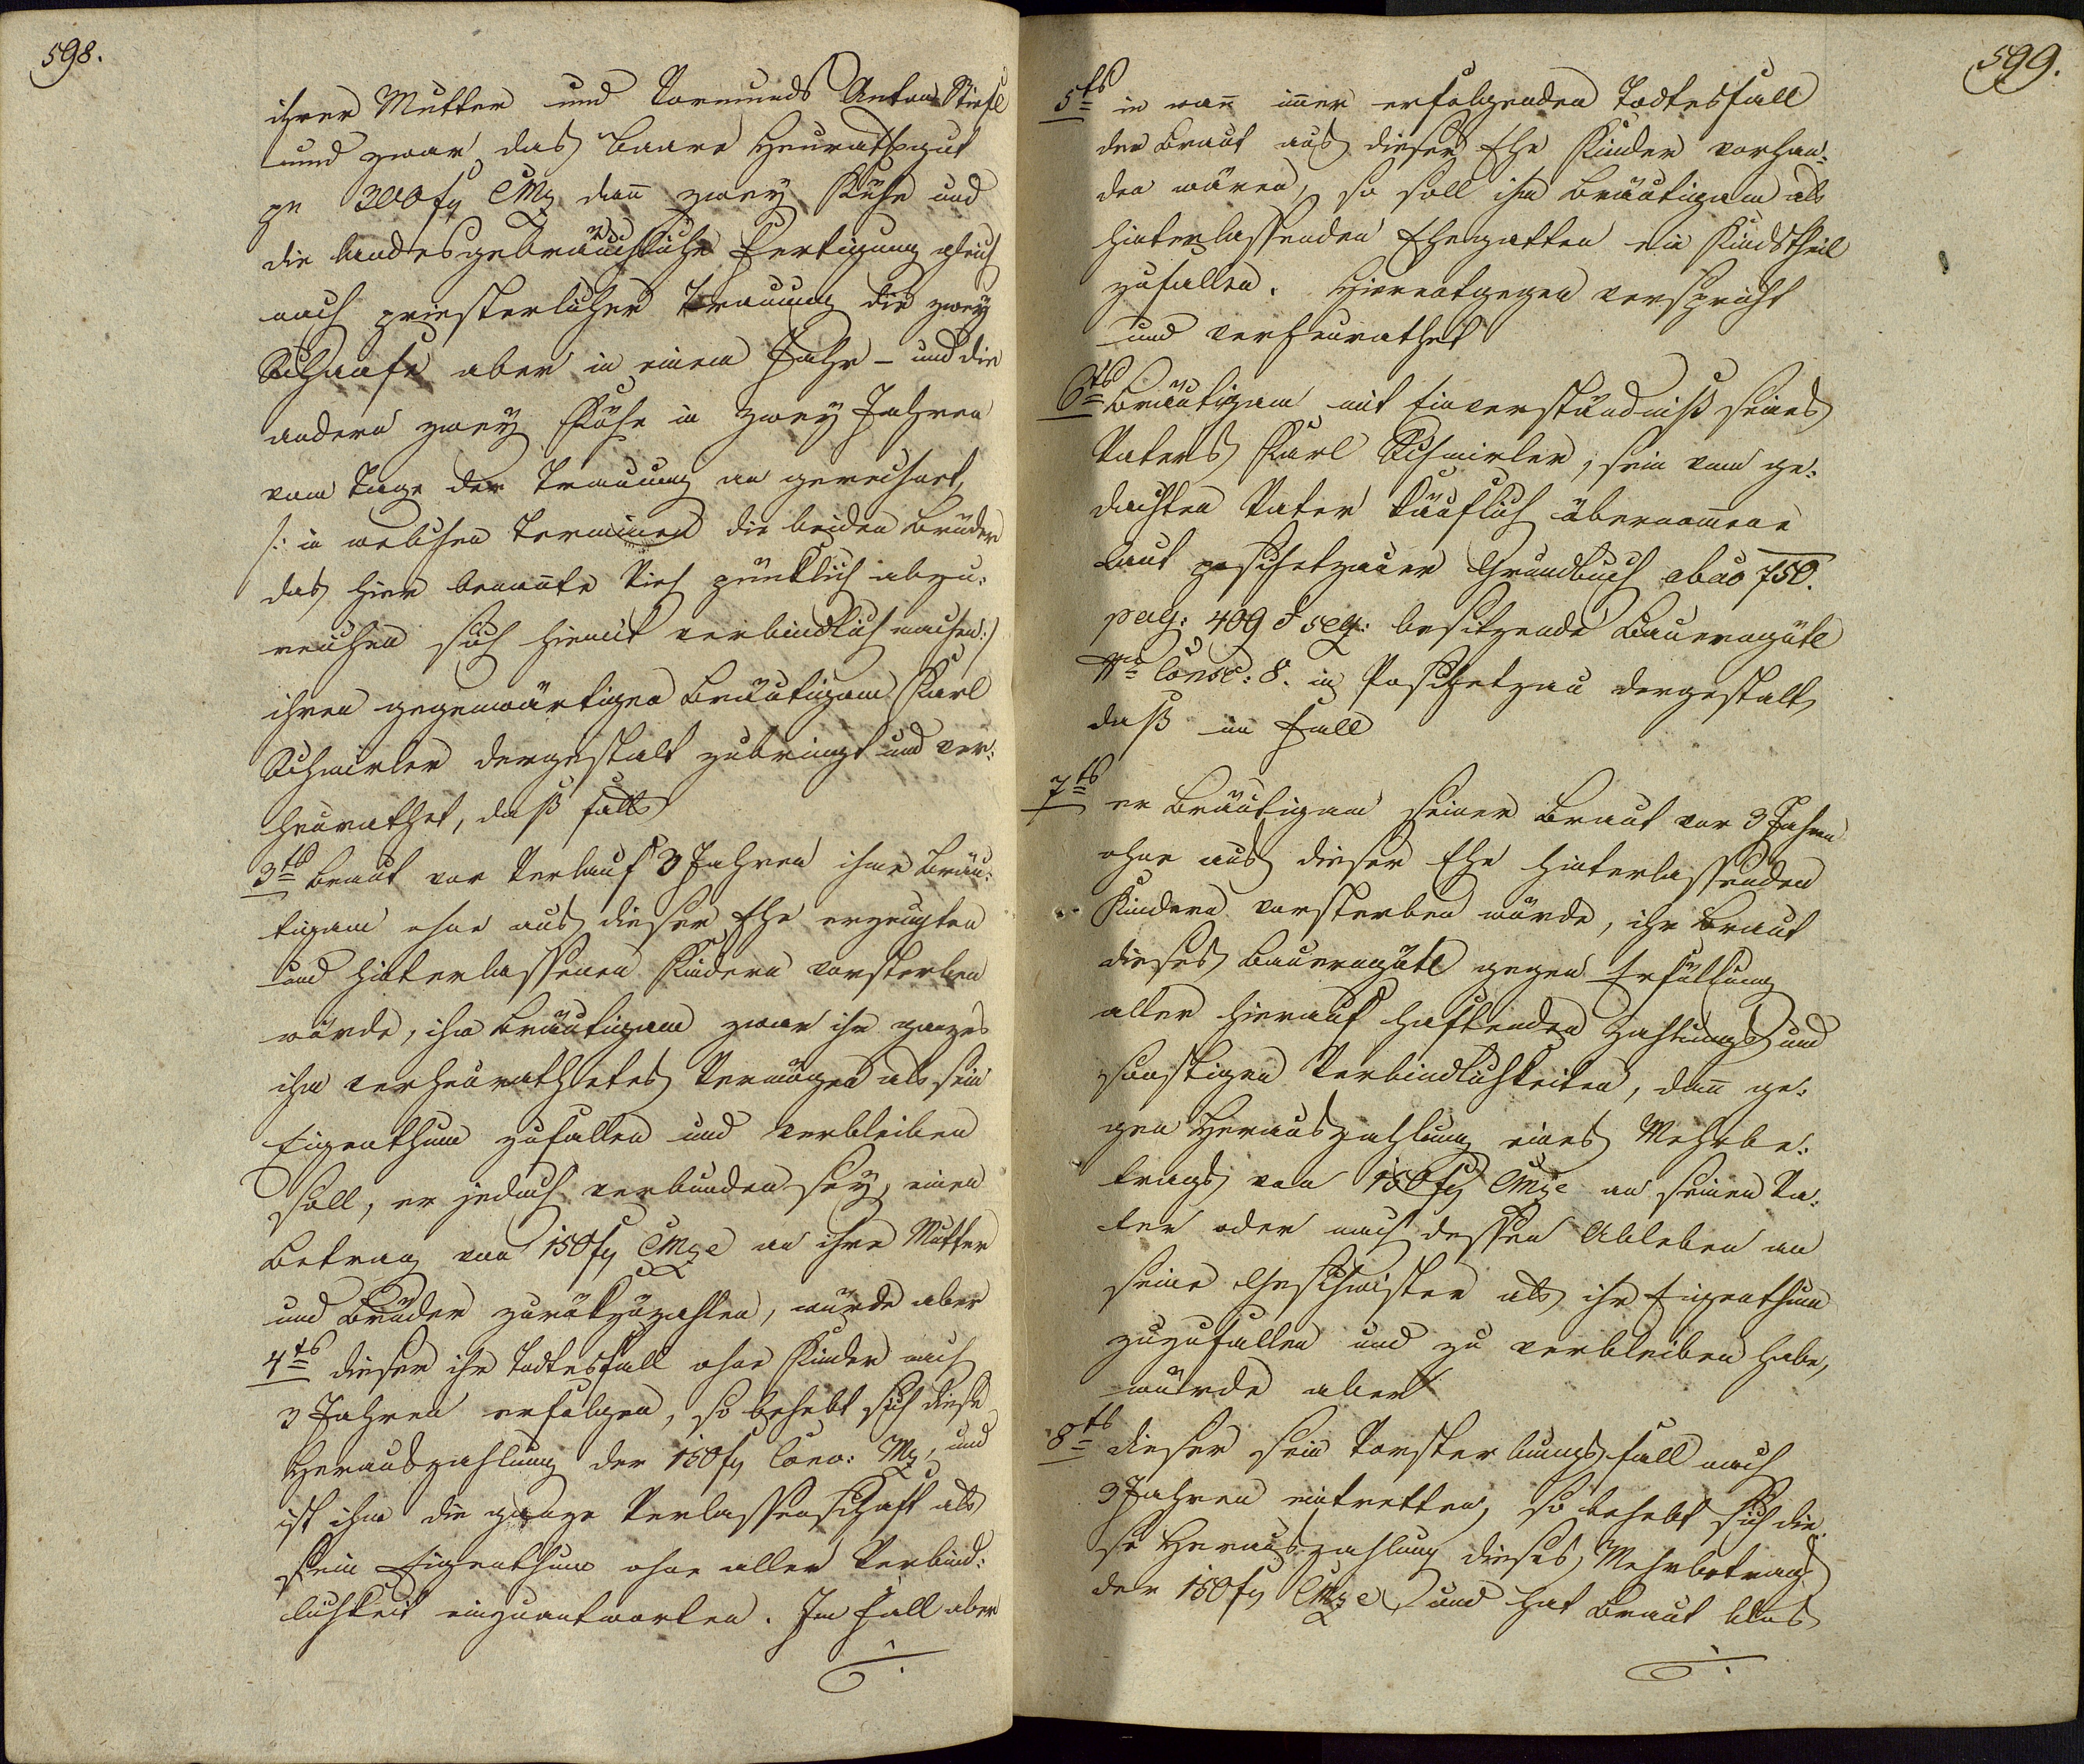 598.
ihrer Mutter und Vormunds Anton Stiefl
und zwar das baare Heurathsgut
pr 300 fl CMz dann zwey Kühe und
die landesgebräuchliche Fertigung gleich
nach priesterlicher Trauung die zwey
Schaafe aber in einem Jahr – und die
andern zwey Kühe in zwey Jahren
vom Tage der Trauung an gerechnet,
/: in welchen Terminen die beiden Brüder
das hier benannte Vieh pünktlich abzu:
reichen sich hiemit verbindlich machen :/
ihren gegenwärtigen Bräutigam Karl
Schmirler dergestalt zubringt und ver:
heurathet, daß falls
3tens Braut vor Verlauf 3 Jahren ihme Bräu:
tigam ohne aus dieser Ehe erzeugten
und hinterlassenen Kindern vorsterben
würde, ihm Bräutigam zwar ihr ganzes
ihm verheurathetes Vermögen als sein
Eigenthum zufallen und verbleiben
soll, er jedoch verbunden sey, einen
Betrag von 150 fl CMze an ihre Mutter
und Brüder zurückzuzahlen, würde aber
4tens dieser ihr Todtesfall ohne Kinder nach
3 Jahren erfolgen, so behebt sich diese
Herauszahlung der 150 fl Conv: Mz, und
ist ihm die ganze Verlassenschaft als
sein Eigenthum ohne aller Verbind:
lichkeit einzuantworten. Im Fall aber
./.
599.
5tens in wann immer erfolgenden Todtesfall
der Braut aus dieser Ehe Kinder vorhan:
den wären, so soll ihm Bräutigam als
hinterlassenden Ehegatten ein Kindstheil
zufallen. Hierentgegen verspricht
und verheurathet
6tens Bräutigam mit Einverständniß seines
Vaters Karl Schmirler, sein vom ge:
dachten Vater käuflich übernommene
laut poschetzauer Grundbuch abao 750.
pag: 409 & seq: besitzende Bauerngütl
Nro Consc: 8. in Poschetzau dergestalt,
daß im Fall
7tens er Bräutigam seiner Braut vor 3 Jahren
ohne aus dieser Ehe hinterlassenden
Kindern vorsterben würde, ihr Braut
dieses Bauerngütl gegen Erfüllung
aller hierauf haftenden Zahlungs und
sonstigen Verbindlichkeiten, dann ge:
gen Herauszahlung eines Mehrbe:
trags von 150 fl CMze an seinen Va:
ter oder nach dessen Ableben an
seine Geschwister als ihr Eigenthum
zuzufallen und zu verbleiben habe,
würde aber
8tens dieser sein Vorsterbungsfall nach
3 Jahren eintretten, so behebt sich die:
se Herauszahlung dieses Mehrbetrags
der 150 fl CMze, und hat Braut blos
./.